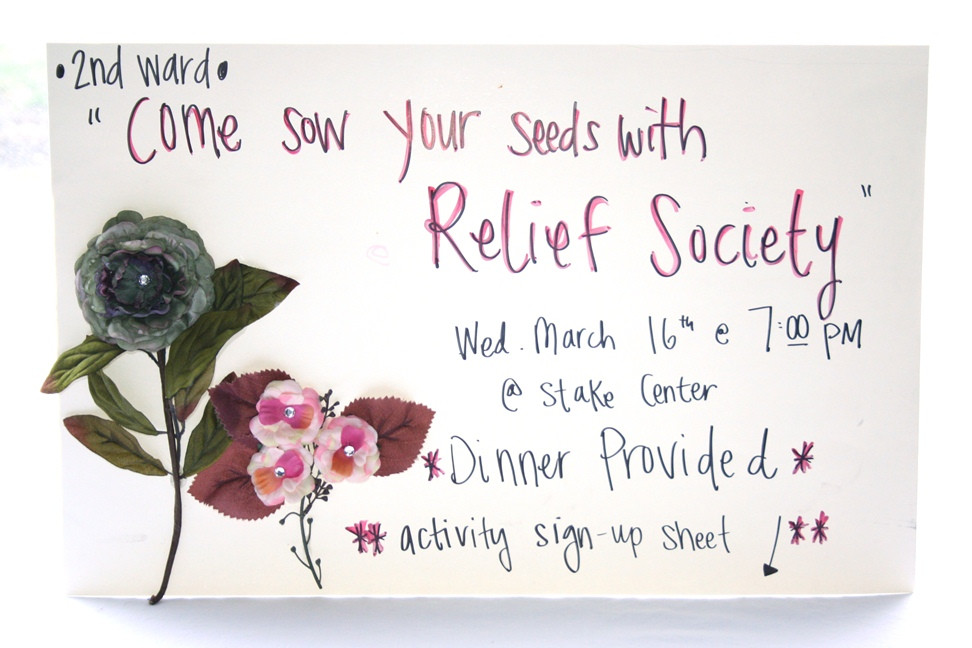 •2nd ward•
"Come sow your seeds with
Relief Society"
Wed. March 16th @ 7:00 PM
@ Stake Center
*Dinner Provided*
** activity sign-up sheet ↓**